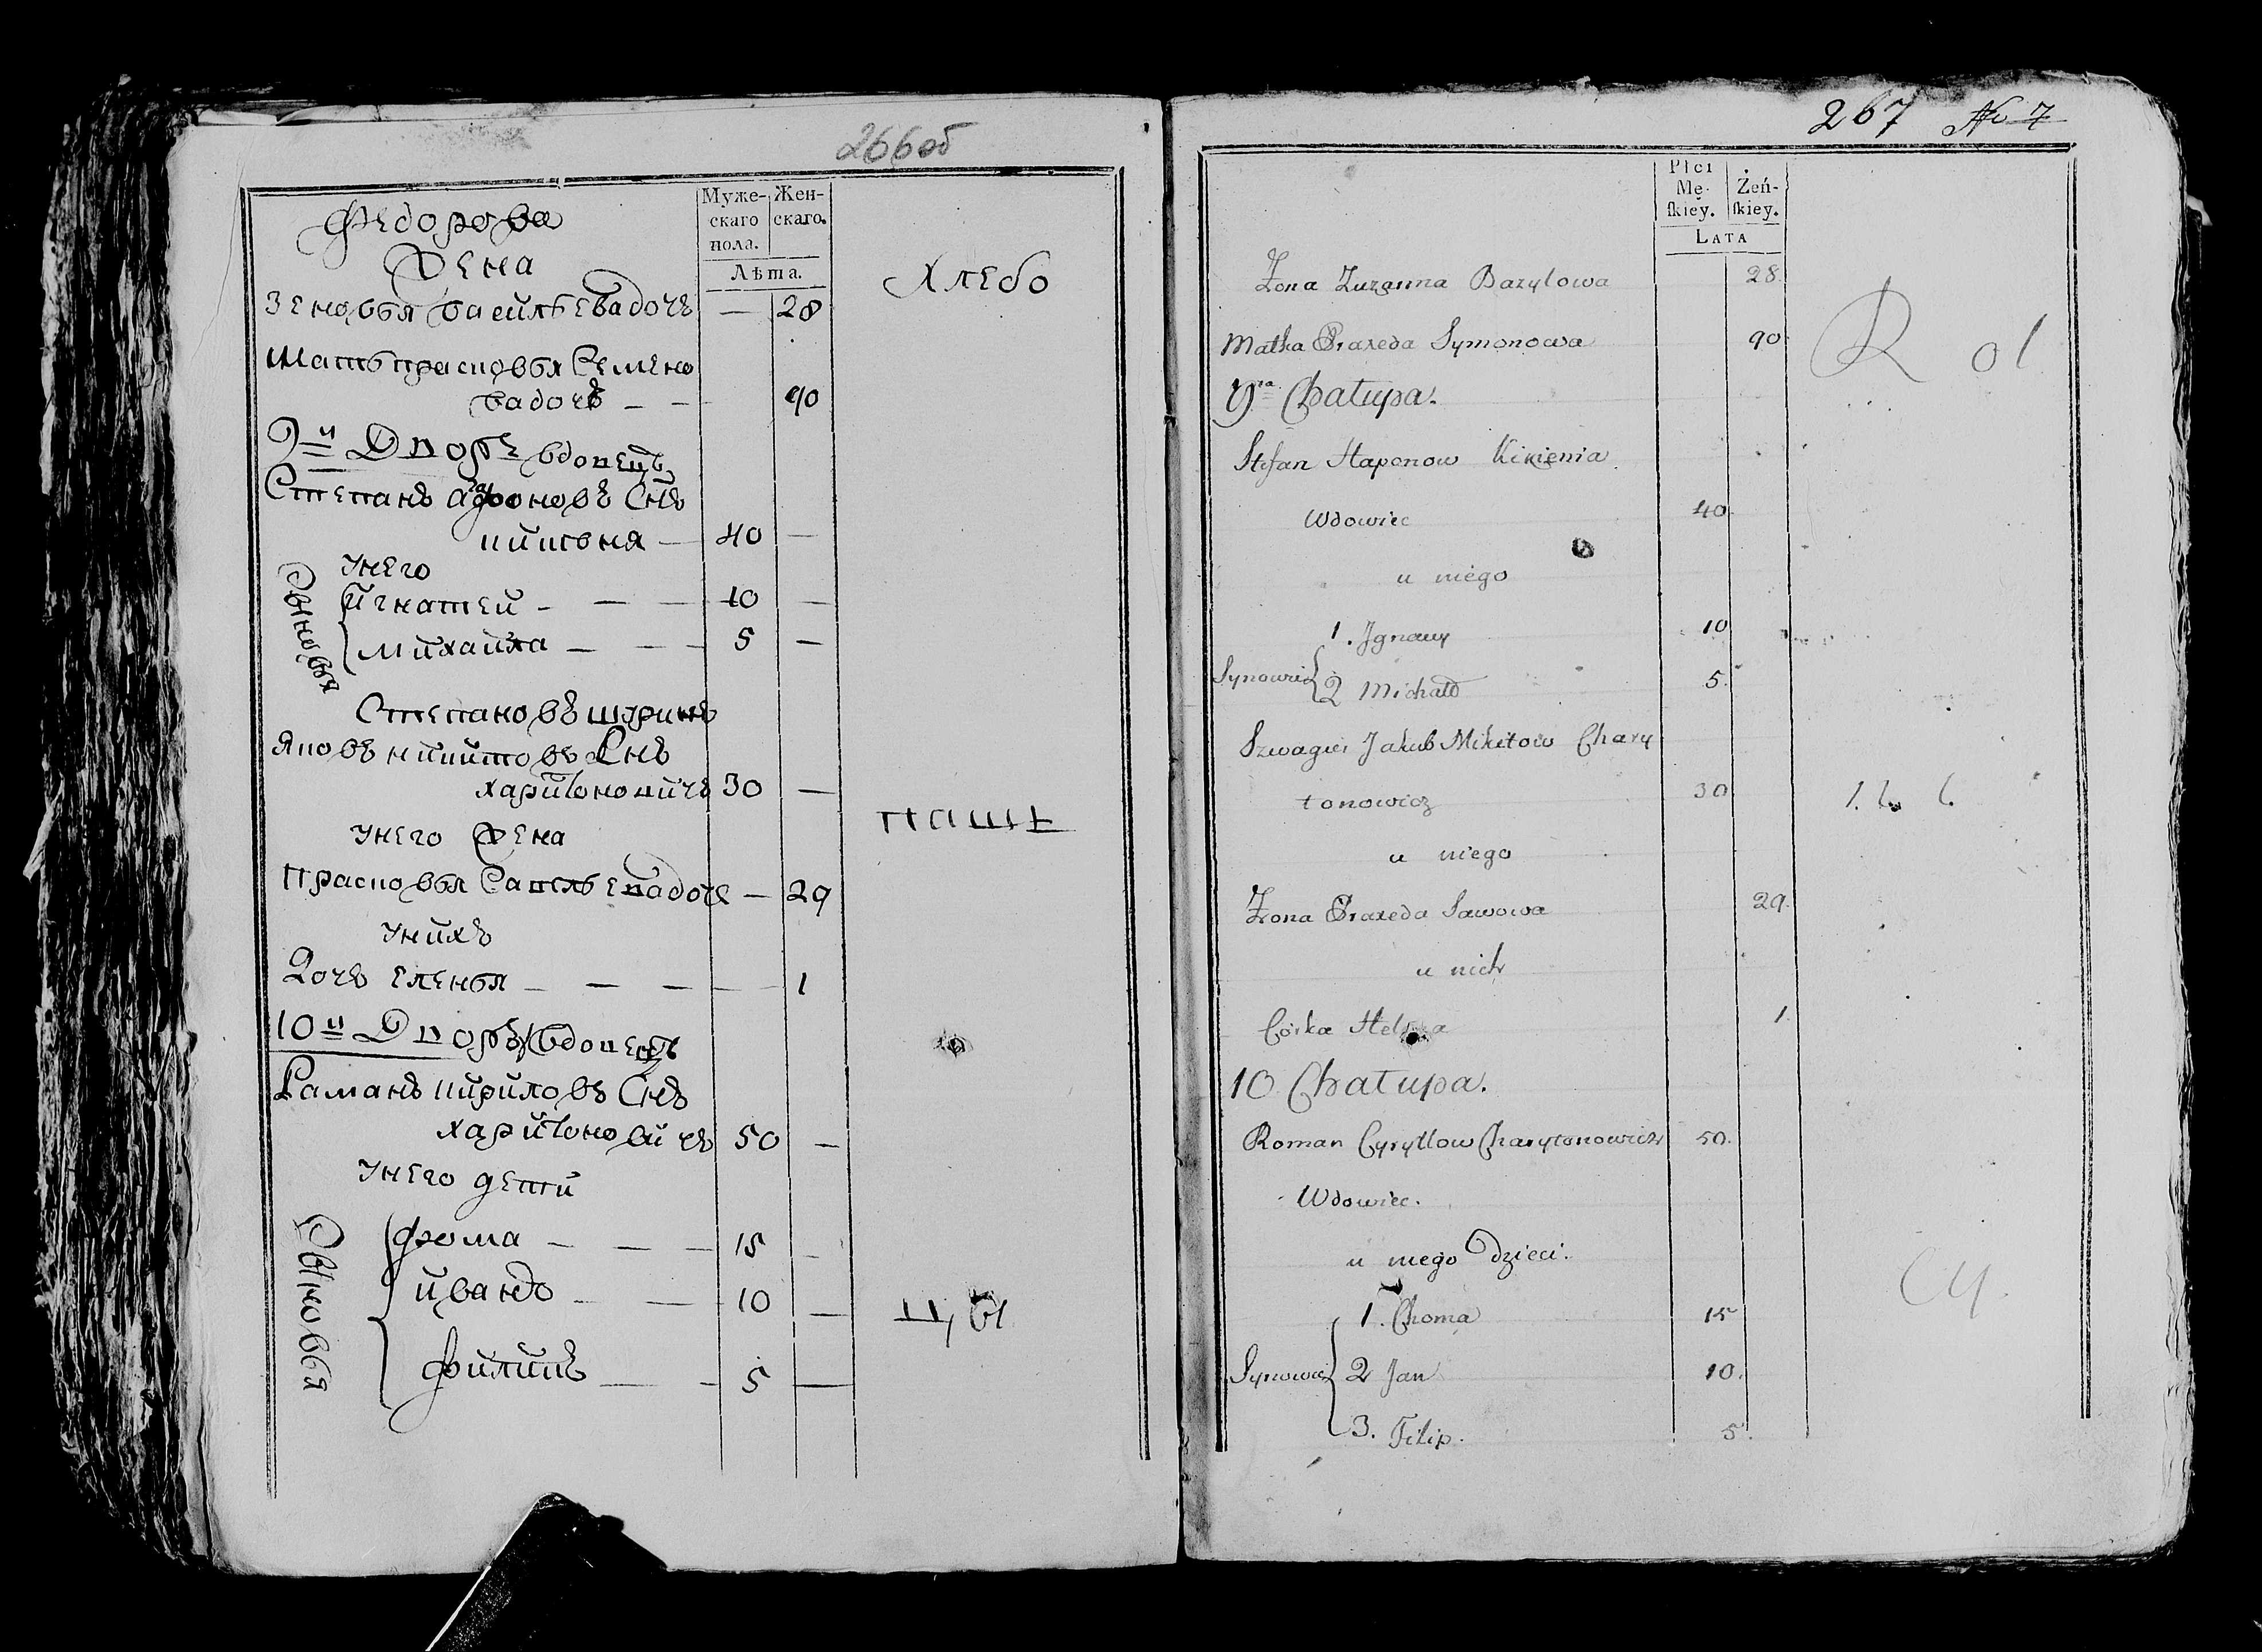 266об
Муже- Жен-
скаго скаго.
пола.
Лѣта.
Федорова
Жена
Хлебо
Зеновья Васильева дочь — 28
Мать прасковья Семено
ва дочь — — 90
9й Дворъ вдовецъ
Степанъ Агафоновъ Снъ
кикеня — 40 —
У него
Сыновья
игнатей — — — 10 —
михаила — — — 5 —
Степановъ шуринъ
Яковъ никитовъ Снъ
харитоновичъ 30 —
паше
У него Жена
Прасковья Савельева доче — 29
У нихъ
Дочь еленья — — — — 1
10й Дворъ вдовецъ
Раманъ кириловъ Снъ
харитоновичъ 50 —
У него дети
Сыновья
фома — — — 15 —
иванъ — — 10 —
цы
филипъ — — 5 —
267 No 7
Płci
Mę- Żeń-
skiey. skiey.
LATA
Żona Zuzanna Bazylowa 28.
Matka Praxeda Symonowa 90
R ol
9ta Chałupa.
Stefan Haponow Kikienia
Wdowiec 40
u niego
1. Jgnacy 10
Synowie
2 Michał 5.
Szwagier Jakub Mikitow Chary
tonowicz 30
u niego
Żona Praxeda Sawowa 29.
u nich
Córka Helena 1.
10 Chałupa.
Roman Cyryllow Charytonowicz 50.
Wdowiec.
u niego Dzieci.
cy.
1. Choma 15
Synowie 2 Jan 10.
3. Filip. 5.